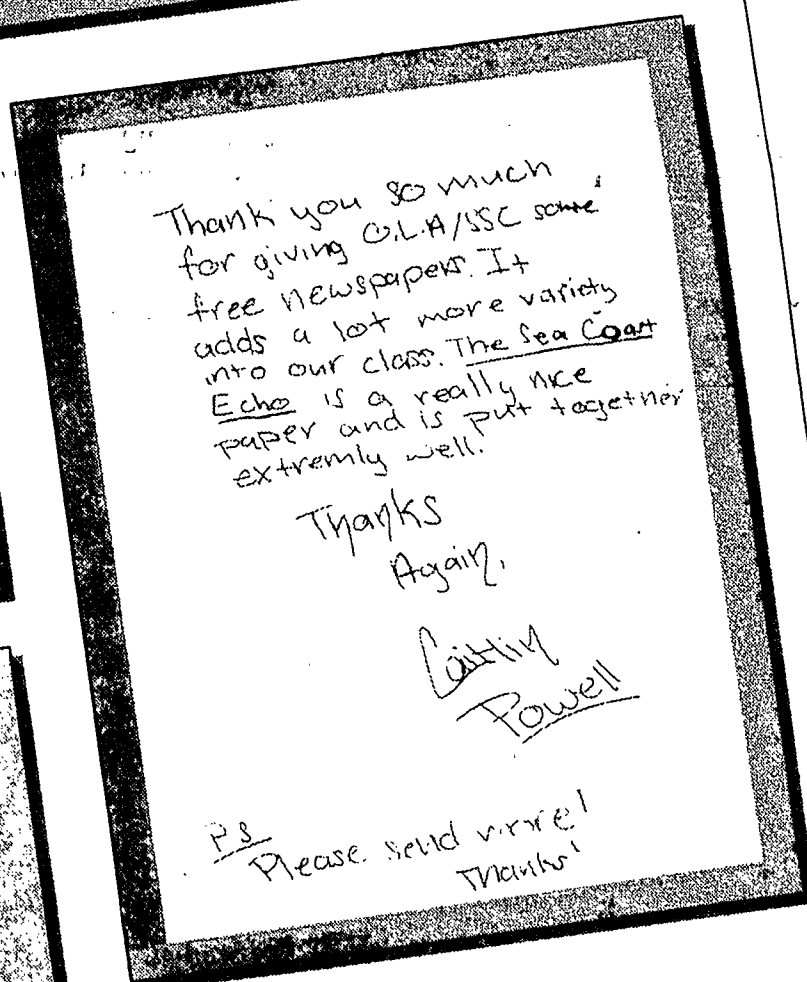 Thank you so much
for giving O.L.A/SSC some
free newspapers. It
adds a lot more variety
into our class. The Sea Coast
Echo is a really nice
paper and is put together
extremly well.
Thanks
Again,
Caitlin
Powell
P.S.
Please send more!
Thanks!